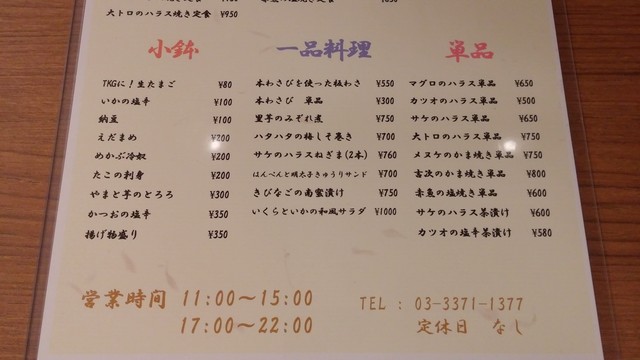 大トロのハラス焼き定食 ¥950
小鉢
TKGに！生たまご ¥80
いかの塩辛 ¥100
納豆 ¥100
えだまめ ¥200
めかぶ冷奴 ¥200
たこの刺身 ¥200
やまと芋のとろろ ¥300
かつおの塩辛 ¥350
揚げ物盛り ¥350
一品料理
本わさびを使った板わさ ¥550
本わさび 単品 ¥300
里芋のみぞれ煮 ¥750
ハタハタの梅しそ巻き ¥700
サケのハラスねぎま(2本) ¥760
はんぺんと明太子きゅうりサンド ¥700
きびなごの南蛮漬け ¥750
いくらといかの和風サラダ ¥1000
単品
マグロのハラス単品 ¥650
カツオのハラス単品 ¥500
サケのハラス単品 ¥650
大トロのハラス単品 ¥750
メヌケのかま焼き単品 ¥750
吉次のかま焼き単品 ¥800
赤魚の塩焼き単品 ¥600
サケのハラス茶漬け ¥600
カツオの塩辛茶漬け ¥580
営業時間 11:00～15:00
17:00～22:00
TEL : 03-3371-1377
定休日 なし